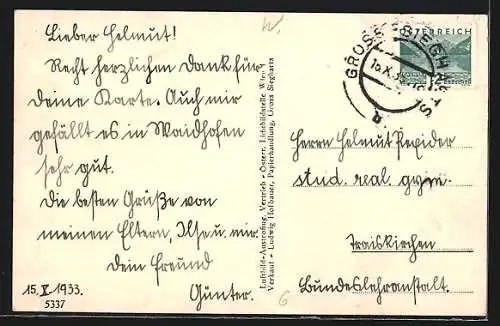 Lieber Helmut!
Recht herzlichen Dank für
deine Karte. Auch mir
gefällt es in Waidhofen
sehr gut.
Die besten Grüße von
meinen Eltern, Ilse u. mir.
Dein Freund
Günter.
15. X. 1933.
5337
Luftbild-Ausstrafing, Vertrieb - Österr. Lichtbildstelle, Wien
Verkauf - Ludwig Hofbauer, Papierhandlung, Gross Siegharts
GROSS-SIEGHARTS
ÖSTERREICH
Herrn Helmut
stud. real. gym.
Traiskirchen
Bundeslehranstalt.